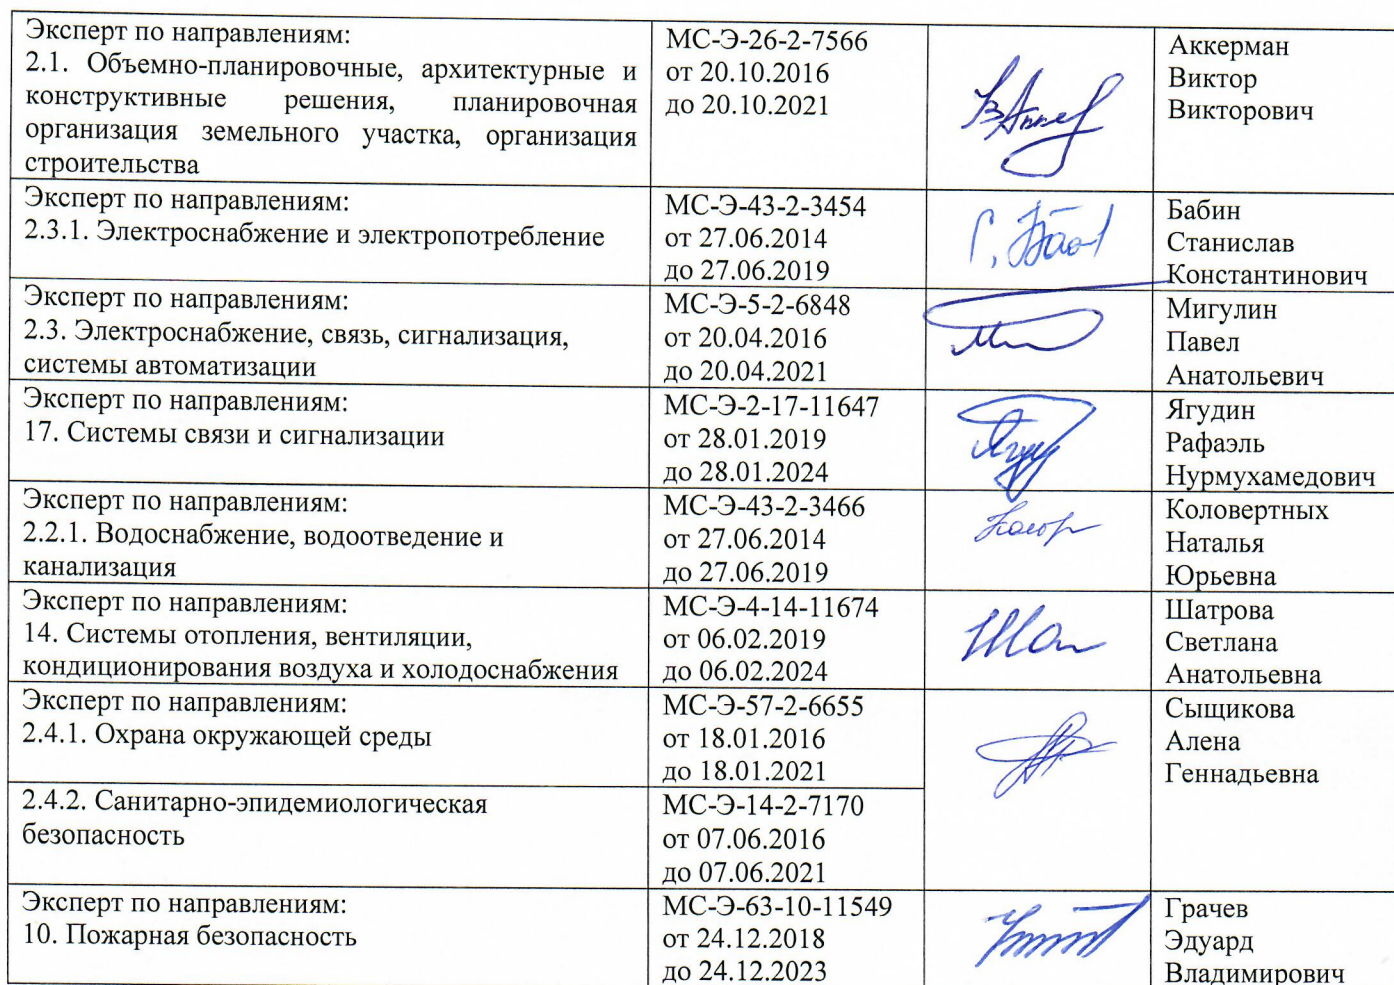 Эксперт по направлениям:
2.1. Объемно-планировочные, архитектурные и
конструктивные решения, планировочная
организация земельного участка, организация
строительства
МС-Э-26-2-7566
от 20.10.2016
до 20.10.2021
Аккерман
Виктор
Викторович
Эксперт по направлениям:
2.3.1. Электроснабжение и электропотребление
МС-Э-43-2-3454
от 27.06.2014
до 27.06.2019
Бабин
Станислав
Константинович
Эксперт по направлениям:
2.3. Электроснабжение, связь, сигнализация,
системы автоматизации
МС-Э-5-2-6848
от 20.04.2016
до 20.04.2021
Мигулин
Павел
Анатольевич
Эксперт по направлениям:
17. Системы связи и сигнализации
МС-Э-2-17-11647
от 28.01.2019
до 28.01.2024
Ягудин
Рафаэль
Нурмухамедович
Эксперт по направлениям:
2.2.1. Водоснабжение, водоотведение и
канализация
МС-Э-43-2-3466
от 27.06.2014
до 27.06.2019
Коловертных
Наталья
Юрьевна
Эксперт по направлениям:
14. Системы отопления, вентиляции,
кондиционирования воздуха и холодоснабжения
МС-Э-4-14-11674
от 06.02.2019
до 06.02.2024
Шатрова
Светлана
Анатольевна
Эксперт по направлениям:
2.4.1. Охрана окружающей среды
МС-Э-57-2-6655
от 18.01.2016
до 18.01.2021
Сыщикова
Алена
Геннадьевна
2.4.2. Санитарно-эпидемиологическая
безопасность
МС-Э-14-2-7170
от 07.06.2016
до 07.06.2021
Эксперт по направлениям:
10. Пожарная безопасность
МС-Э-63-10-11549
от 24.12.2018
до 24.12.2023
Грачев
Эдуард
Владимирович